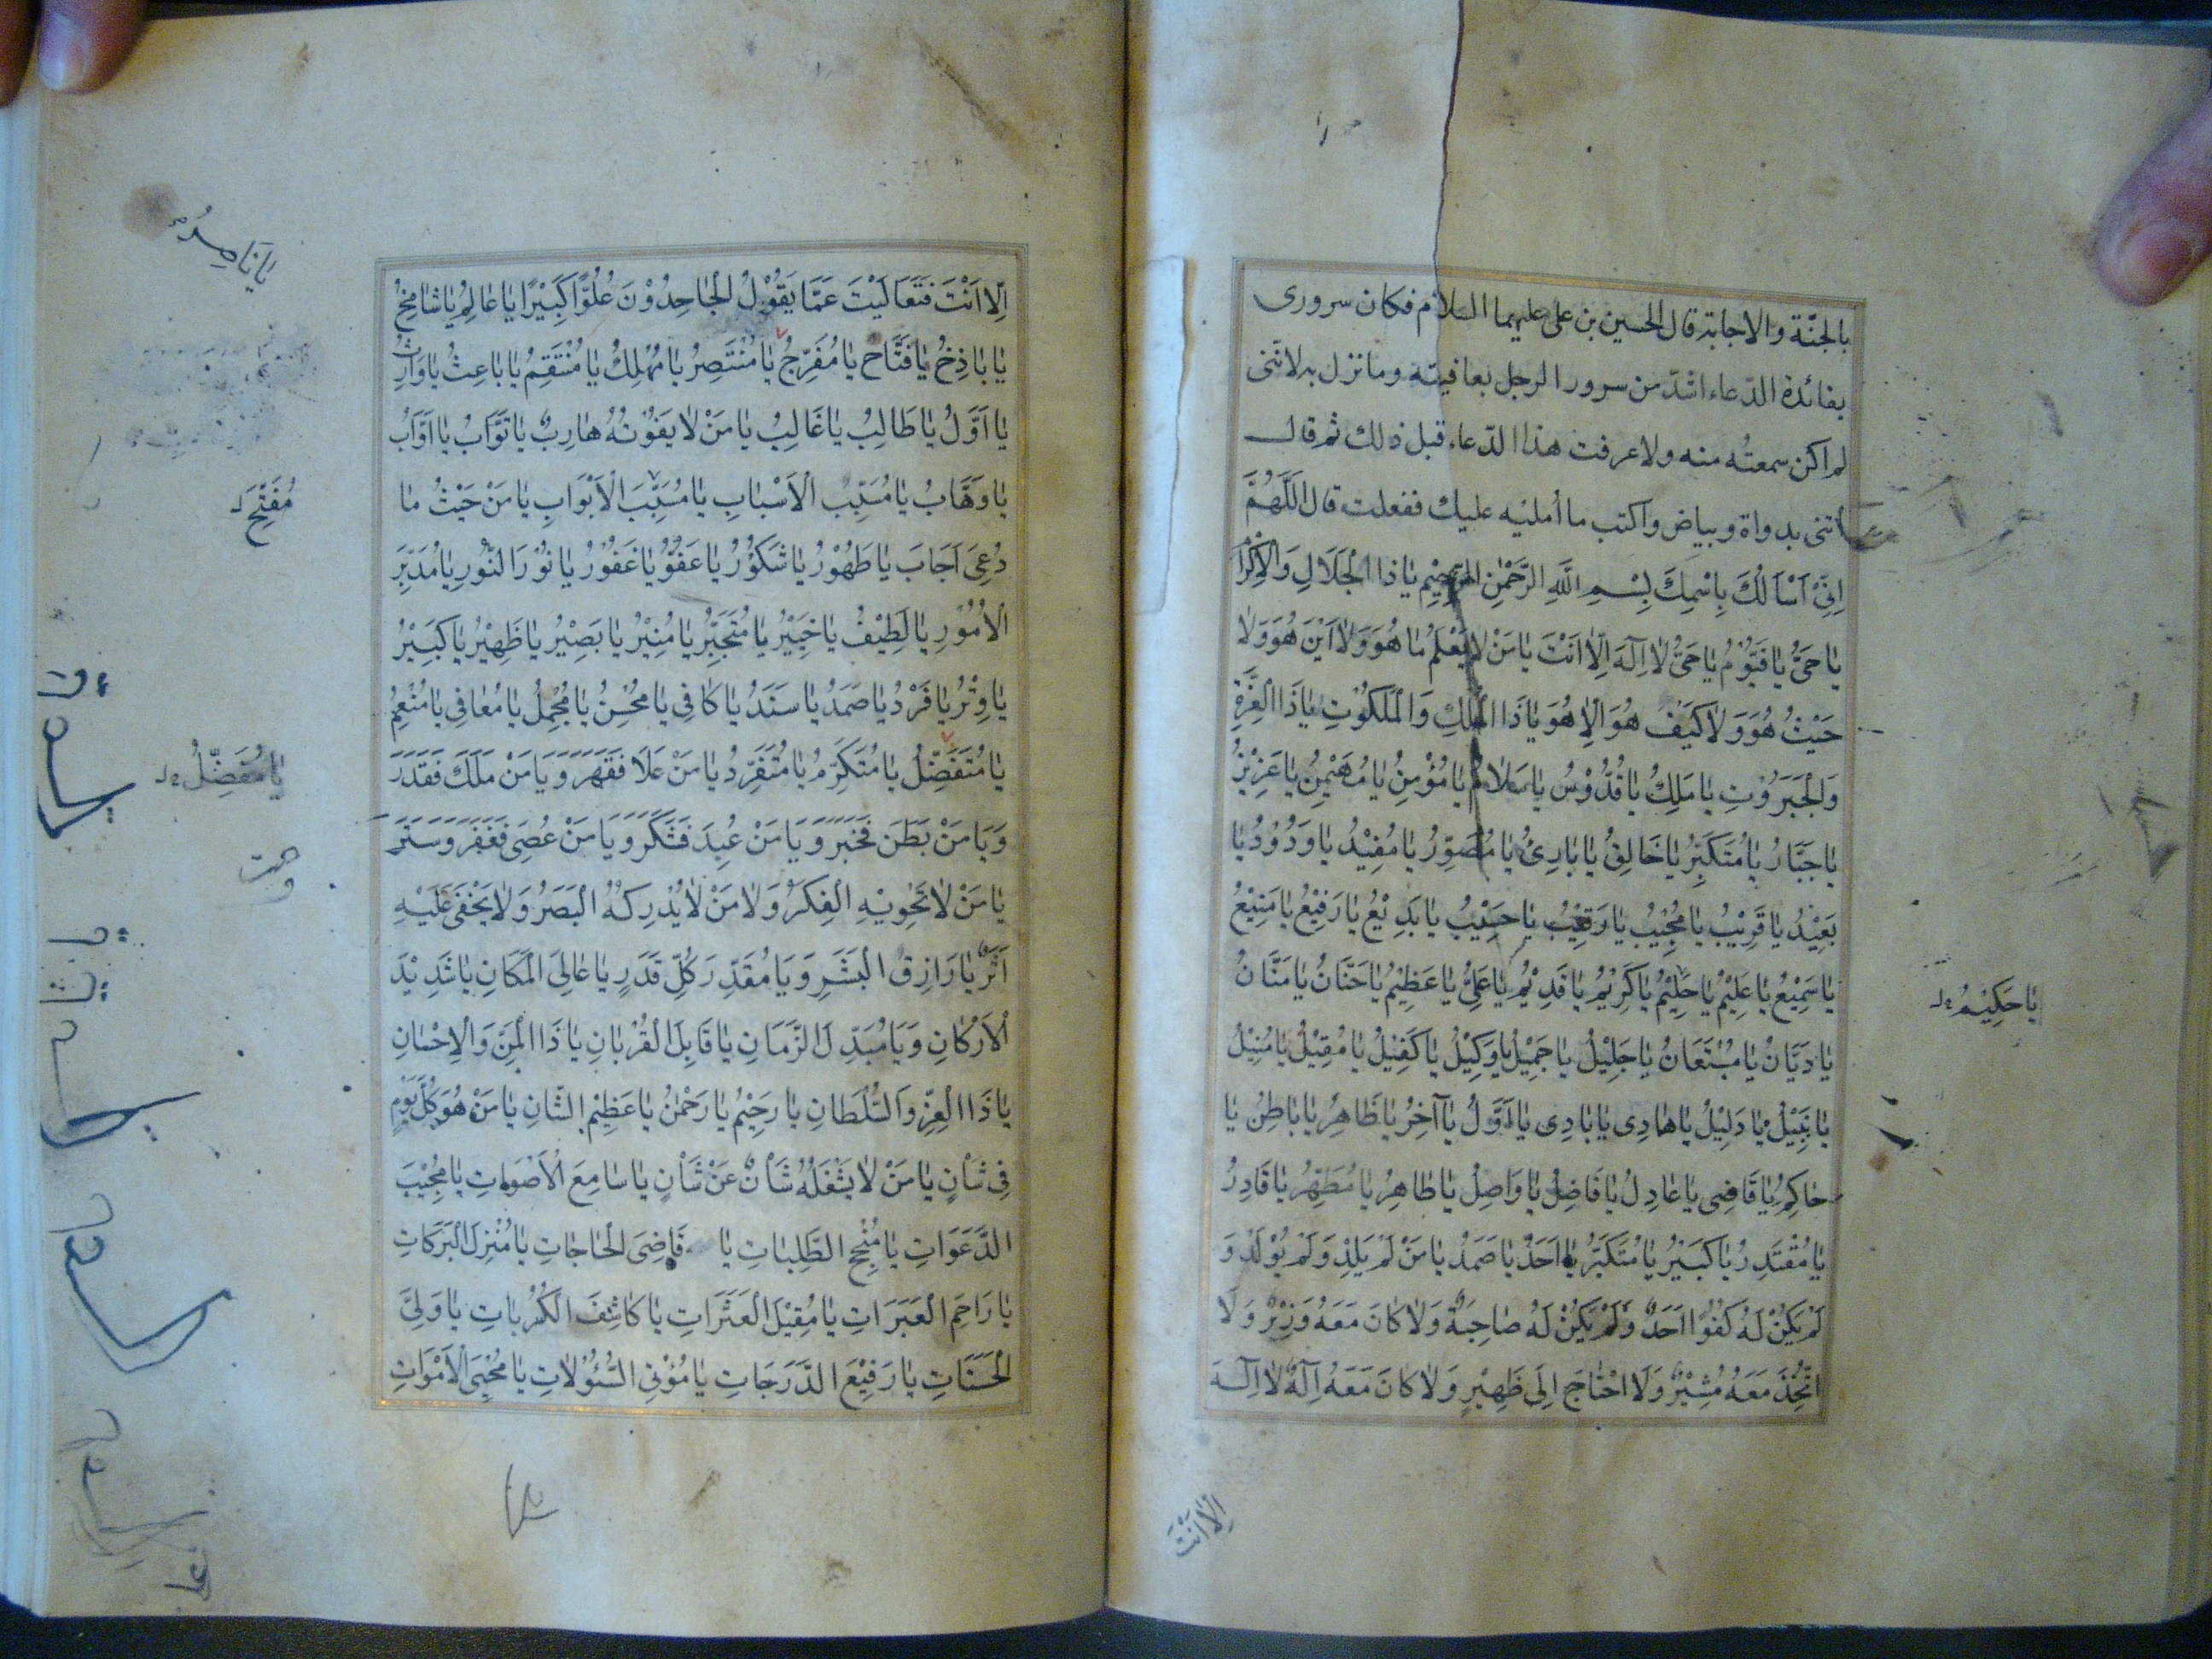 بالجنّة والاجابة قال الحسين بن على عليهما السلام فكان سرورى
بفائدة الدّعاء اشدّ من سرور الرجل بعافيته وما نزل به لانّنى
لم اكن سمعته منه ولا عرفت هذا الدّعاء قبل ذلك ثم قال
أتنى بدواة وبياض واكتب ما أمليه عليك ففعلت قال اَللَّهُمَّ
اِنِّى اَسْاَلُكَ بِاسْمِكَ بِسْمِ اللَّهِ الرَّحْمٰنِ الرَّحِيْمِ يَا ذَا الْجَلَالِ وَالْاِكْرَامِ
يَا حَىُّ يَا قَيُّوْمُ يَا حَىُّ لَا اِلٰهَ اِلَّا اَنْتَ يَا مَنْ لَا يَعْلَمُ مَا هُوَ وَلَا اَيْنَ هُوَ وَلَا
حَيْثُ هُوَ وَلَا كَيْفَ هُوَ اِلَّا هُوَ يَا ذَا الْمُلْكِ وَالْمَلَكُوْتِ يَا ذَا الْعِزَّةِ
وَالْجَبَرُوْتِ يَا مَلِكُ يَا قُدُّوْسُ يَا سَلَامُ يَا مُؤْمِنُ يَا مُهَيْمِنُ يَا عَزِيْزُ
يَا جَبَّارُ يَا مُتَكَبِّرُ يَا خَالِقُ يَا بَارِئُ يَا مُصَوِّرُ يَا مُفِيْدُ يَا وَدُوْدُ يَا
بَعِيْدُ يَا قَرِيْبُ يَا مُجِيْبُ يَا رَقِيْبُ يَا حَسِيْبُ يَا بَدِيْعُ يَا رَفِيْعُ يَا مَنِيْعُ
يَا سَمِيْعُ يَا عَلِيْمُ يَا حَلِيْمُ يَا كَرِيْمُ يَا قَدِيْمُ يَا عَلِىُّ يَا عَظِيْمُ يَا حَنَّانُ يَا مَنَّانُ
يَا حَكِيْمُ
يَا دَيَّانُ يَا مُسْتَعَانُ يَا جَلِيْلُ يَا جَمِيْلُ يَا وَكِيْلُ يَا كَفِيْلُ يَا مُقِيْلُ يَا مُنِيْلُ
يَا نَبِيْلُ يَا دَلِيْلُ يَا هَادِى يَا بَادِى يَا اَوَّلُ يَا آخِرُ يَا ظَاهِرُ يَا بَاطِنُ يَا
حَاكِمُ يَا قَاضِى يَا عَادِلُ يَا فَاضِلُ يَا وَاصِلُ يَا طَاهِرُ يَا مُطَهِّرُ يَا قَادِرُ
يَا مُقْتَدِرُ يَا كَبِيْرُ يَا مُتَكَبِّرُ يَا اَحَدُ يَا صَمَدُ يَا مَنْ لَمْ يَلِدْ وَلَمْ يُوْلَدْ وَ
لَمْ يَكُنْ لَهُ كُفُوًا اَحَدٌ وَلَمْ يَكُنْ لَهُ صَاحِبَةٌ وَلَا كَانَ مَعَهُ وَزِيْرٌ وَلَا
اتَّخَذَ مَعَهُ مُشِيْرٌ وَلَا احْتَاجَ اِلَى ظَهِيْرٍ وَلَا كَانَ مَعَهُ اِلٰهٌ لَا اِلٰهَ
اِلَّا اَنْتَ
اِلَّا اَنْتَ فَتَعَالَيْتَ عَمَّا يَقُوْلُ الْجَاحِدُوْنَ عُلُوًّا كَبِيْرًا يَا عَالِمُ يَا شَامِخُ
يَا بَاذِخُ يَا فَتَّاحُ يَا مُفَرِّجُ يَا مُنْتَصِرُ يَا مُهْلِكُ يَا مُنْتَقِمُ يَا بَاعِثُ يَا وَارِثُ
يَا نَاصِرُ
يَا اَوَّلُ يَا طَالِبُ يَا غَالِبُ يَا مَنْ لَا يَفُوْتُهُ هَارِبٌ يَا تَوَّابُ يَا اَوَّابُ
يَا وَهَّابُ يَا مُسَبِّبَ الْاَسْبَابِ يَا مُسَبِّبَ الْاَبْوَابِ يَا مَنْ حَيْثُ مَا
مُفَتِّحَ
دُعِىَ اَجَابَ يَا طَهُوْرُ يَا شَكُوْرُ يَا عَفُوُّ يَا غَفُوْرُ يَا نُوْرَ النُّوْرِ يَا مُدَبِّرَ
الْاُمُوْرِ يَا لَطِيْفُ يَا خَبِيْرُ يَا مُتَجَبِّرُ يَا مُنِيْرُ يَا بَصِيْرُ يَا ظَهِيْرُ يَا كَبِيْرُ
يَا وِتْرُ يَا فَرْدُ يَا صَمَدُ يَا سَنَدُ يَا كَافِى يَا مُحْسِنُ يَا مُجْمِلُ يَا مُعَافِى يَا مُنْعِمُ
يَا مُتَفَضِّلُ يَا مُتَكَرِّمُ يَا مُتَفَرِّدُ يَا مَنْ عَلَا فَقَهَرَ وَيَا مَنْ مَلَكَ فَقَدَرَ
يَا مُفَضِّلُ
وَيَا مَنْ بَطَنَ فَخَبَرَ وَيَا مَنْ عُبِدَ فَشَكَرَ وَيَا مَنْ عُصِىَ فَغَفَرَ وَسَتَرَ
يَا مَنْ لَا تَحْوِيْهِ الْفِكَرُ وَلَا مَنْ لَا يُدْرِكُهُ الْبَصَرُ وَلَا يَخْفَى عَلَيْهِ
اَثَرٌ يَا رَازِقَ الْبَشَرِ وَيَا مُقَدِّرَ كُلِّ قَدَرٍ يَا عَالِىَ الْمَكَانِ يَا شَدِيْدَ
الْاَرْكَانِ وَيَا مُبَدِّلَ الزَّمَانِ يَا قَابِلَ الْقُرْبَانِ يَا ذَا الْمَنِّ وَالْاِحْسَانِ
يَا ذَا الْعِزِّ وَالسُّلْطَانِ يَا رَحِيْمُ يَا رَحْمٰنُ يَا عَظِيْمَ الشَّانِ يَا مَنْ هُوَ كُلَّ يَوْمٍ
فِى شَأْنٍ يَا مَنْ لَا يَشْغَلُهُ شَأْنٌ عَنْ شَأْنٍ يَا سَامِعَ الْاَصْوَاتِ يَا مُجِيْبَ
الدَّعَوَاتِ يَا مُنْجِحَ الطَّلِبَاتِ يَا قَاضِىَ الْحَاجَاتِ يَا مُنْزِلَ الْبَرَكَاتِ
يَا رَاحِمَ الْعَبَرَاتِ يَا مُقِيْلَ الْعَثَرَاتِ يَا كَاشِفَ الْكُرُبَاتِ يَا وَلِىَّ
الْحَسَنَاتِ يَا رَفِيْعَ الدَّرَجَاتِ يَا مُؤْتِىَ السُّؤُلَاتِ يَا مُحْيِىَ الْاَمْوَاتِ